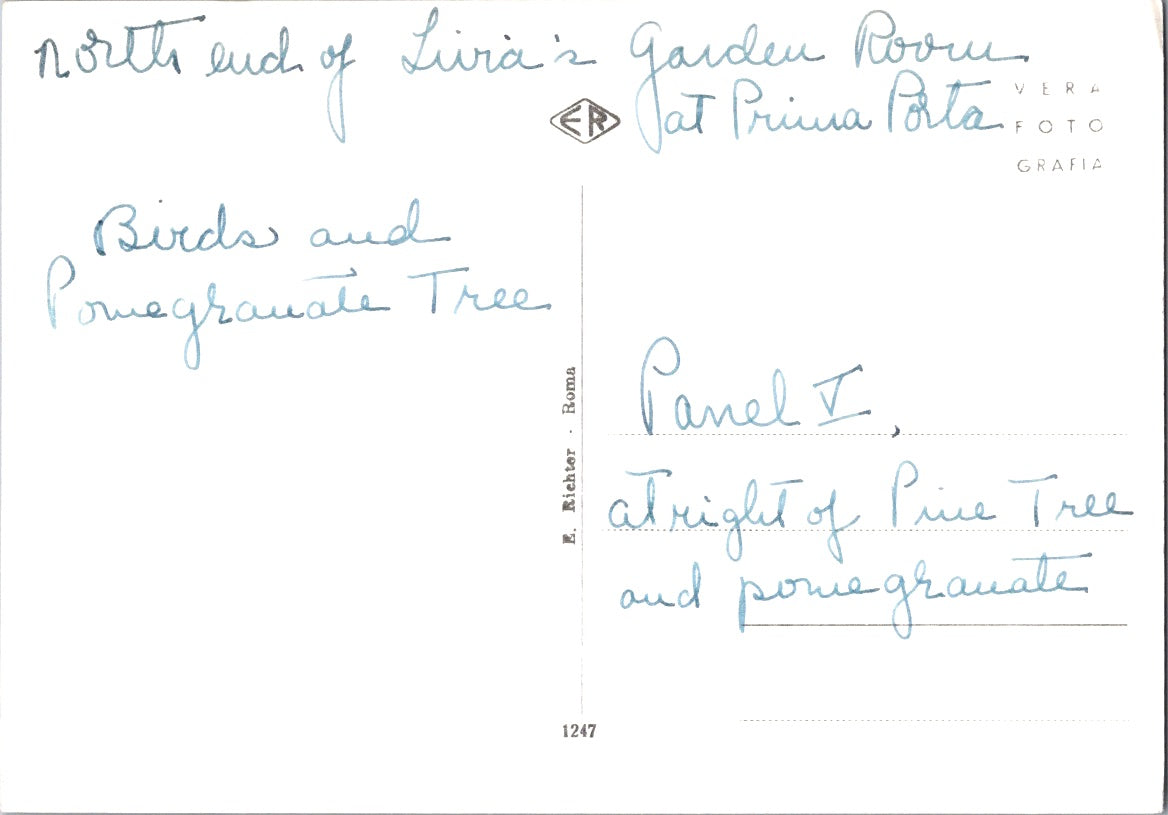 North end of Livia's Garden Room
at Prima Porta
VERA
FOTO
GRAFIA
ER
Birds and
Pomegranate Tree
E. Richter · Roma
Panel V,
at right of Pine Tree
and pomegranate
1247